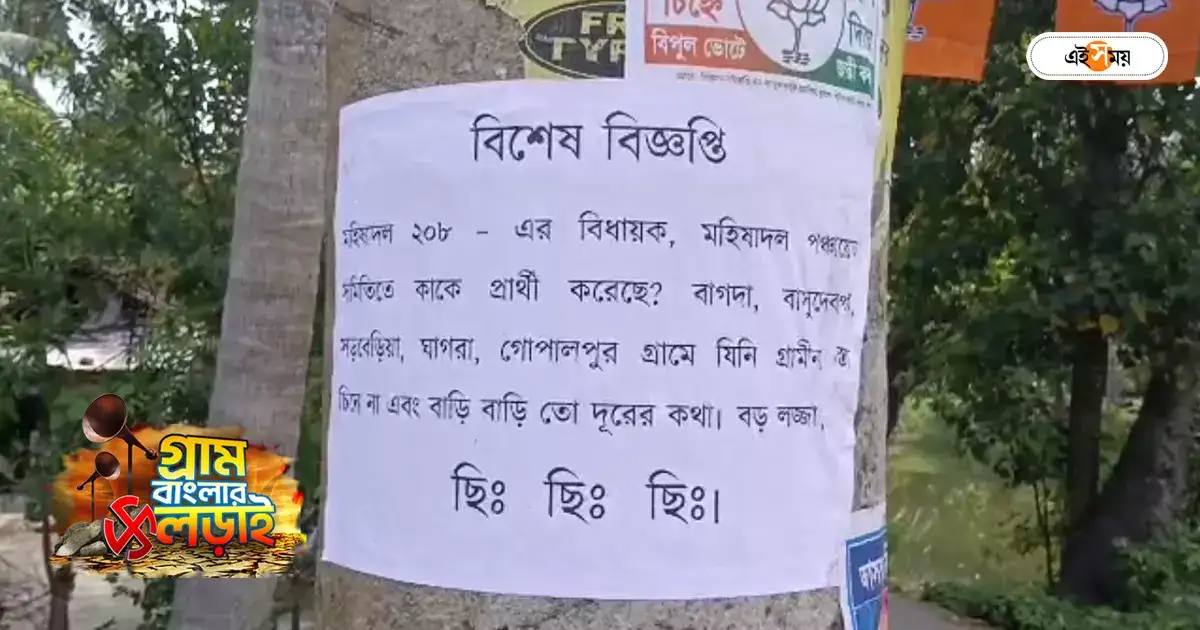 FR
TYP
চিহ্নে
বিপুল ভোটে
দিয়ে
এই সময়
বিশেষ বিজ্ঞপ্তি
মহিষাদল ২০৮ - এর বিধায়ক, মহিষাদল পঞ্চায়েত
সমিতিতে কাকে প্রার্থী করেছে? বাগদা, বাসুদেবপুর,
ঘাগরা, গোপালপুর গ্রামে যিনি গ্রামীন
চিনে না এবং বাড়ি বাড়ি তো দূরের কথা। বড় লজ্জা,
ছিঃ ছিঃ ছিঃ।
গ্রাম
বাংলার
লড়াই